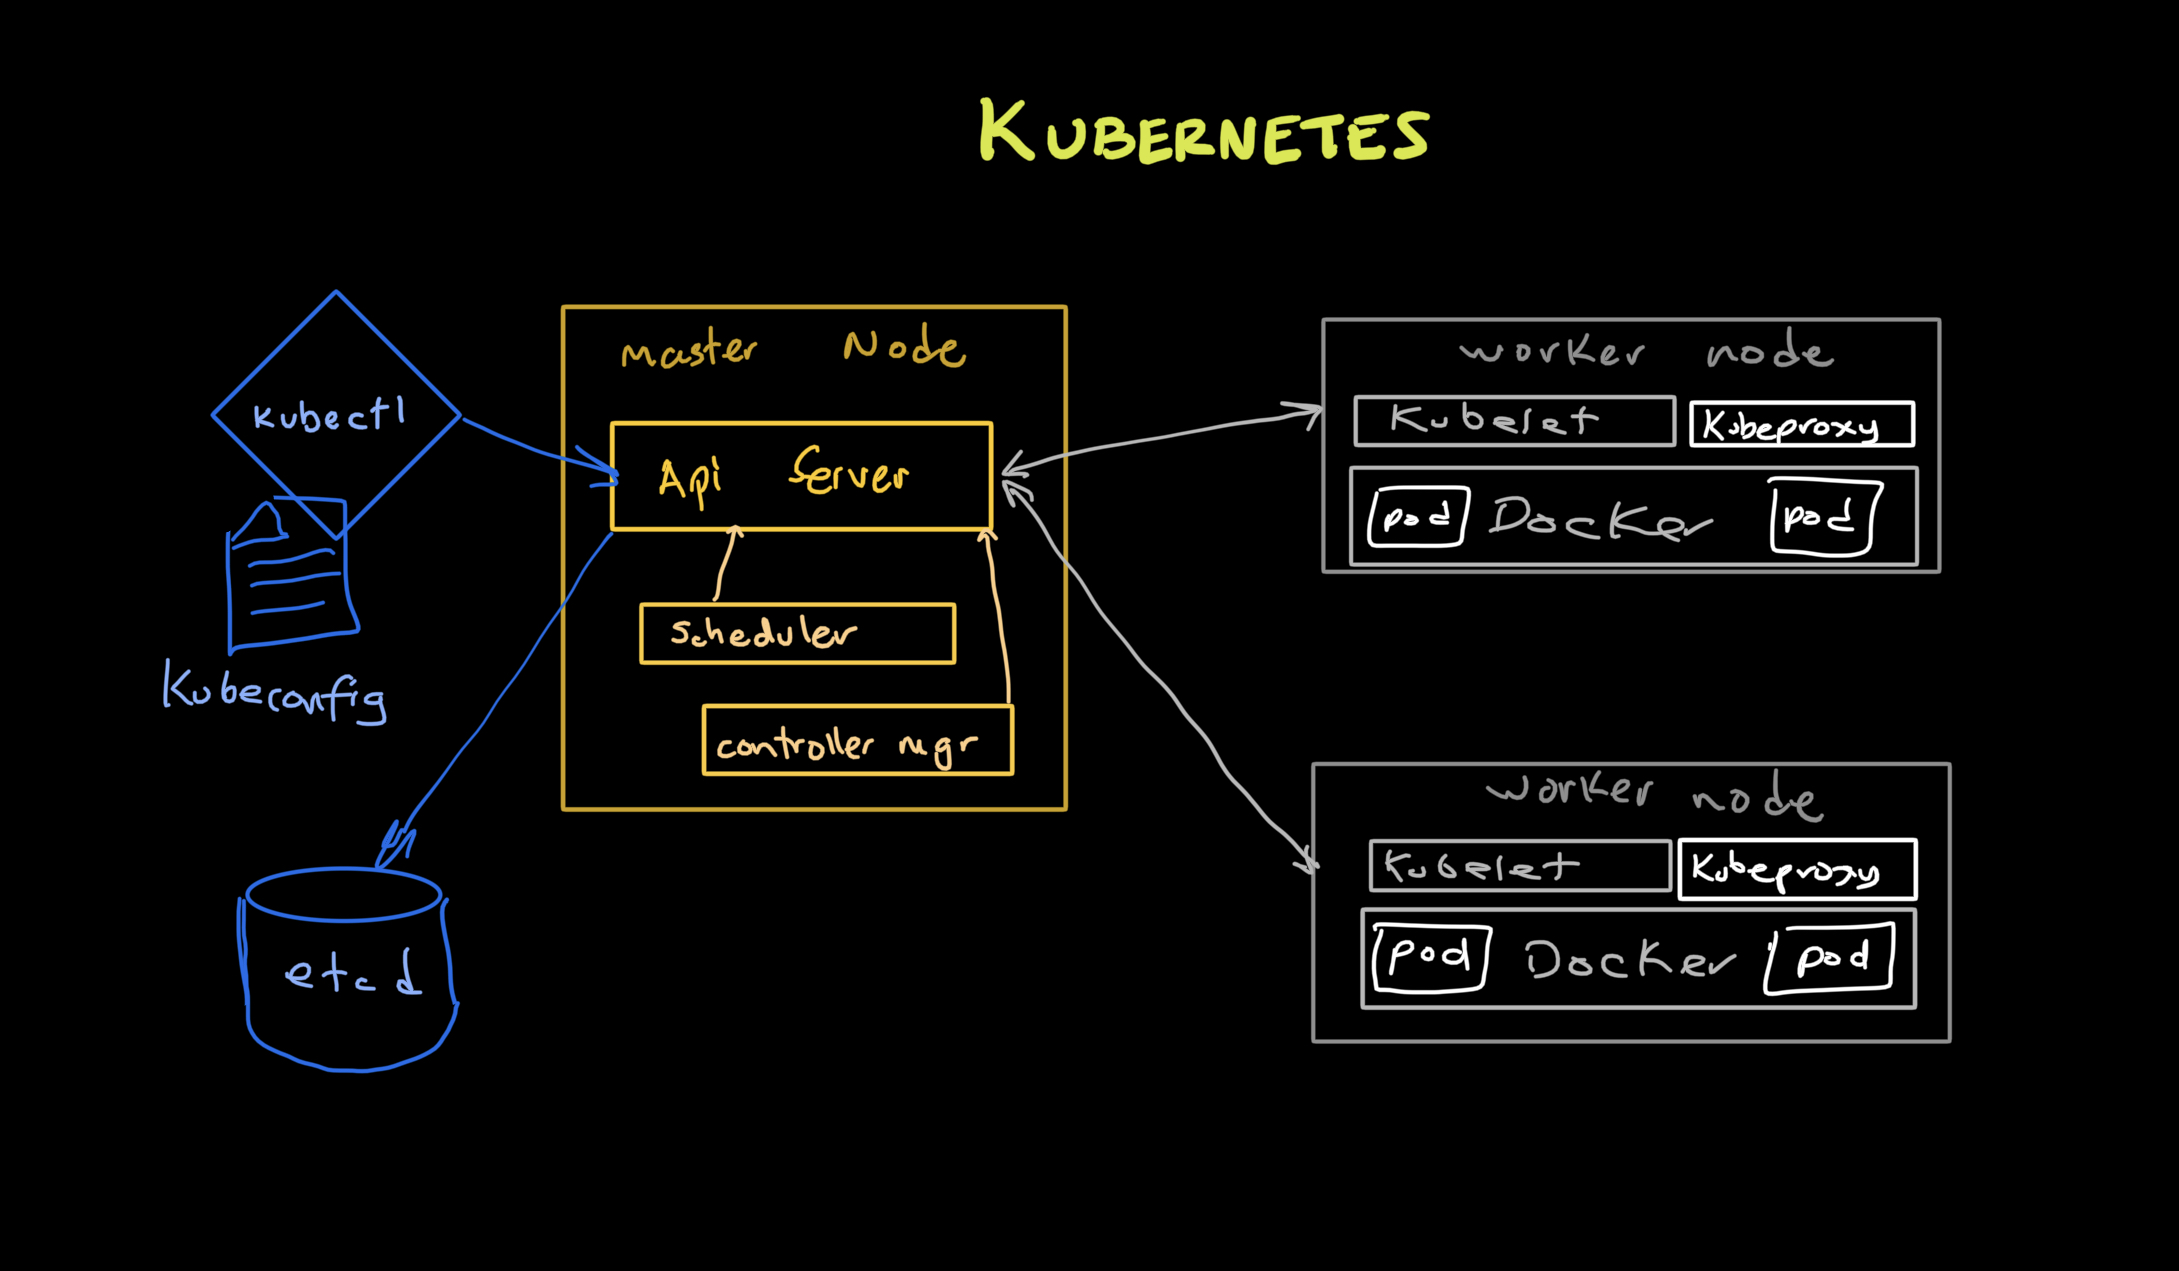 KUBERNETES
kubectl
Kubeconfig
etcd
master Node
Api Server
scheduler
controller mgr
worker node
Kubelet
Kubeproxy
pod
Docker
pod
worker node
Kubelet
Kubeproxy
pod
Docker
pod